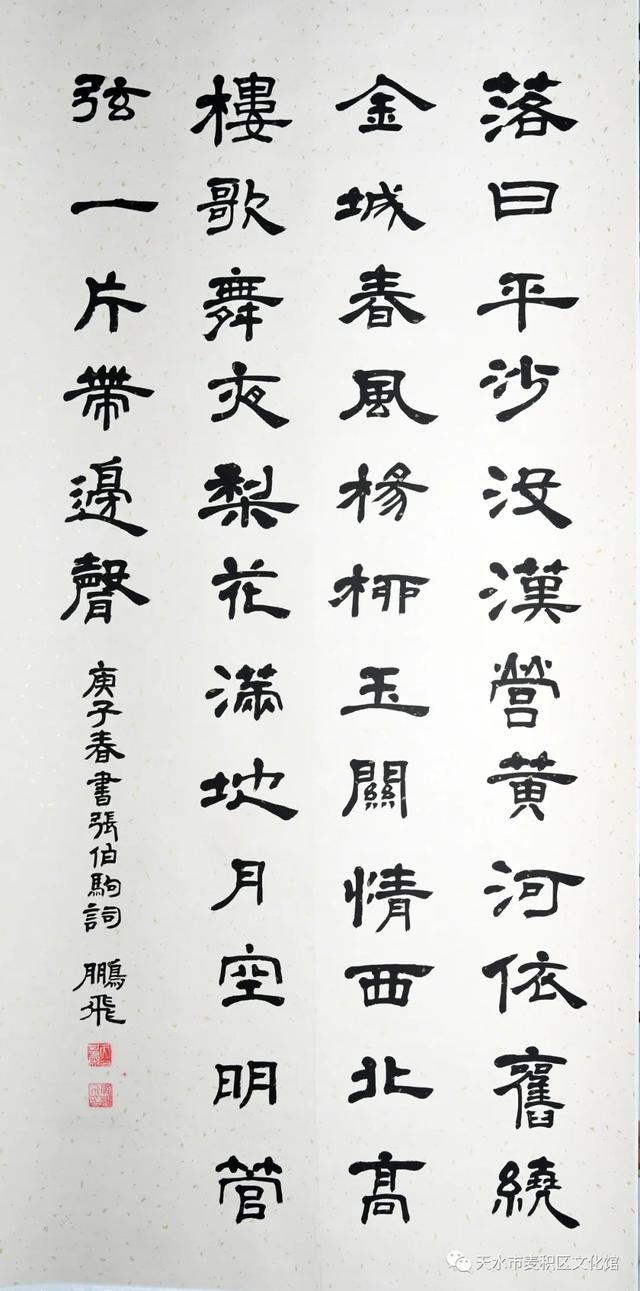 落日平沙没漢營黄河依舊繞
金城春風楊栁玉關情西北高
樓歌舞夜梨花滿地月空明管
弦一片帶邊聲
庚子春書張伯駒詞 鵬飛
天水市麦积区文化馆